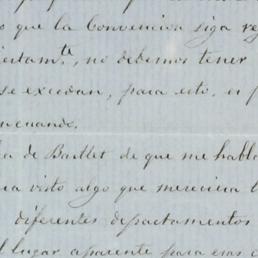 o que la Convencion siga re
ertamte, no debemos tener
se excedan, para esto, es p
encuando.
ta de Batllet de que me habla
ia visto algo que mereciera l
diferentes departamentos
l lugar aparente para esas c